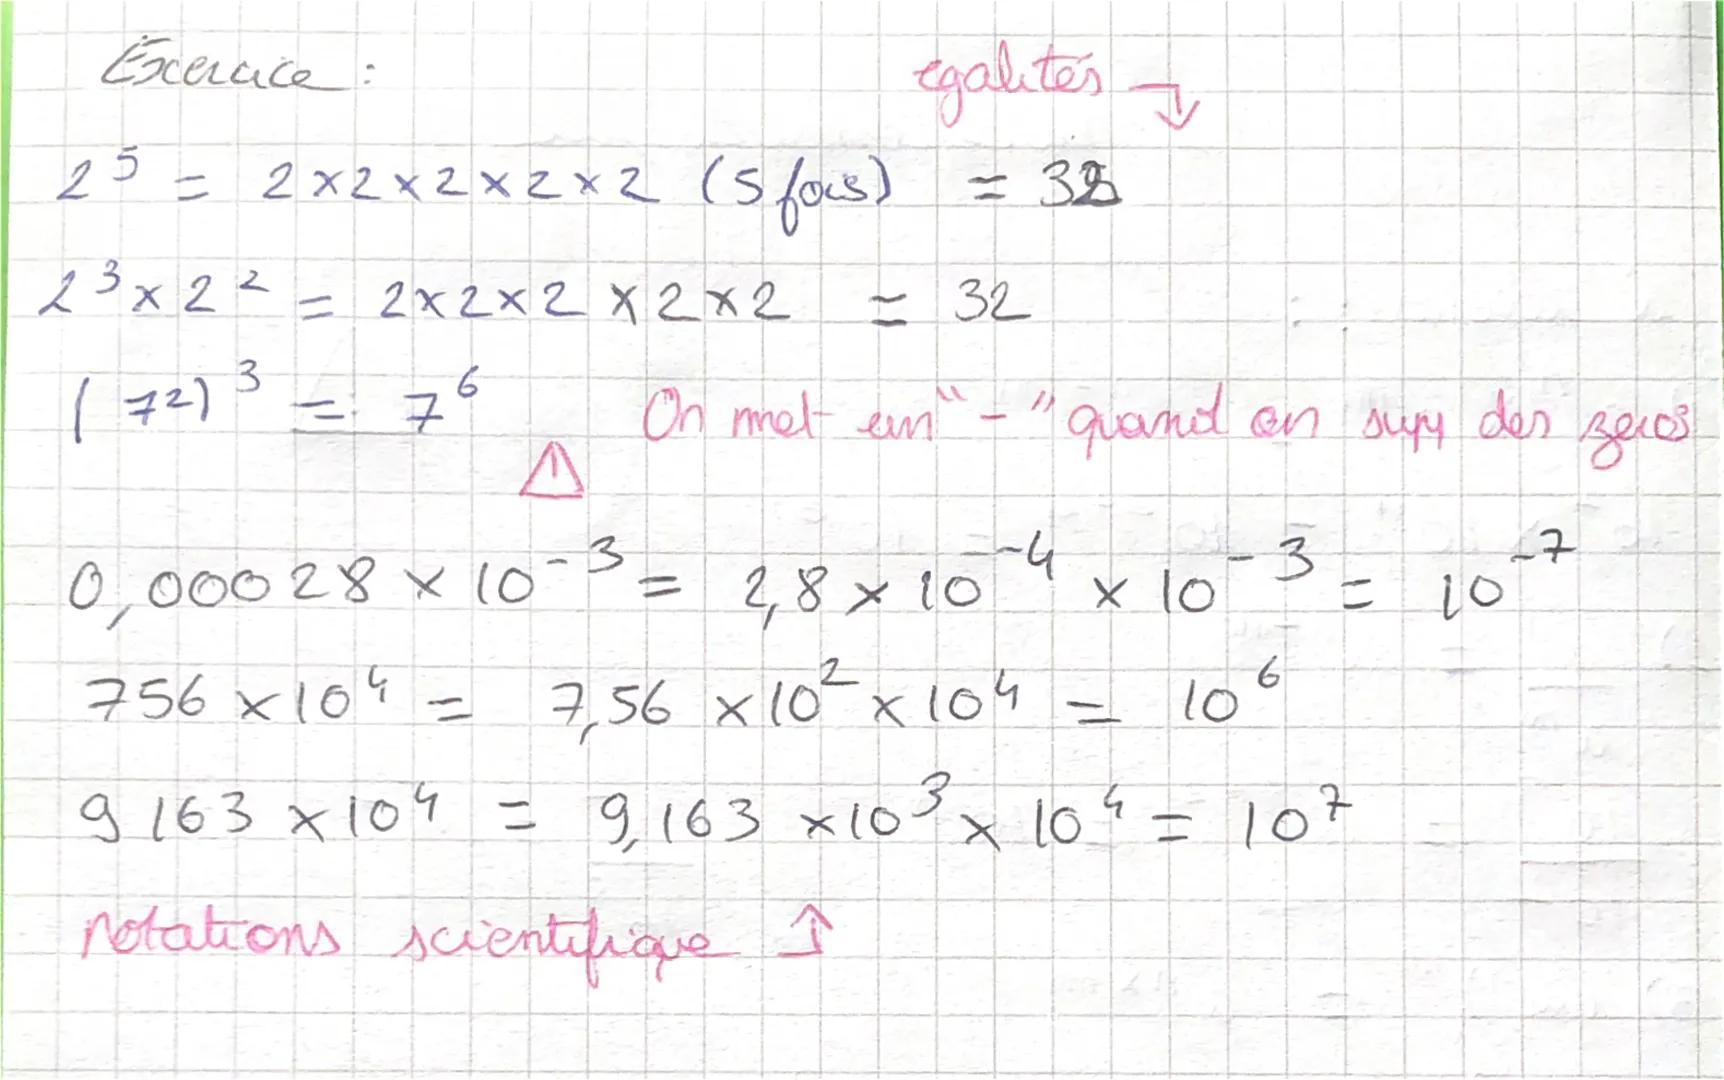 Exercice : égalités ↴
2⁵ = 2×2×2×2×2 (5 fois) = 32
2³×2² = 2×2×2×2×2 = 32
(7²)³ = 7⁶ On met un "-" quand on supp des zéros
⚠
0,00028×10⁻³ = 2,8×10⁻⁴ × 10⁻³ = 10⁻⁷
756×10⁴ = 7,56 ×10² ×10⁴ = 10⁶
9163 ×10⁴ = 9,163 ×10³ × 10⁴ = 10⁷
notations scientifique ↑